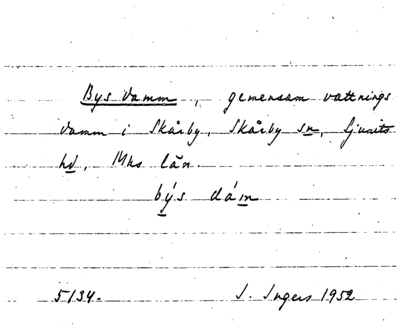 Bys damm, gemensam vattnings
damm i Skårby, Skårby sn, Ljunits
hd, Mhs län.
býs dám
5/34. I. Ingers 1952